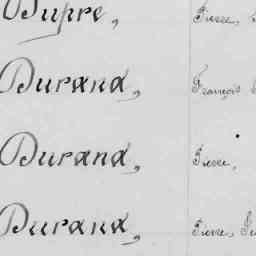 Dupre, Pierre,
Durand, François
Durand, Pierre,
Durand, Pierre,